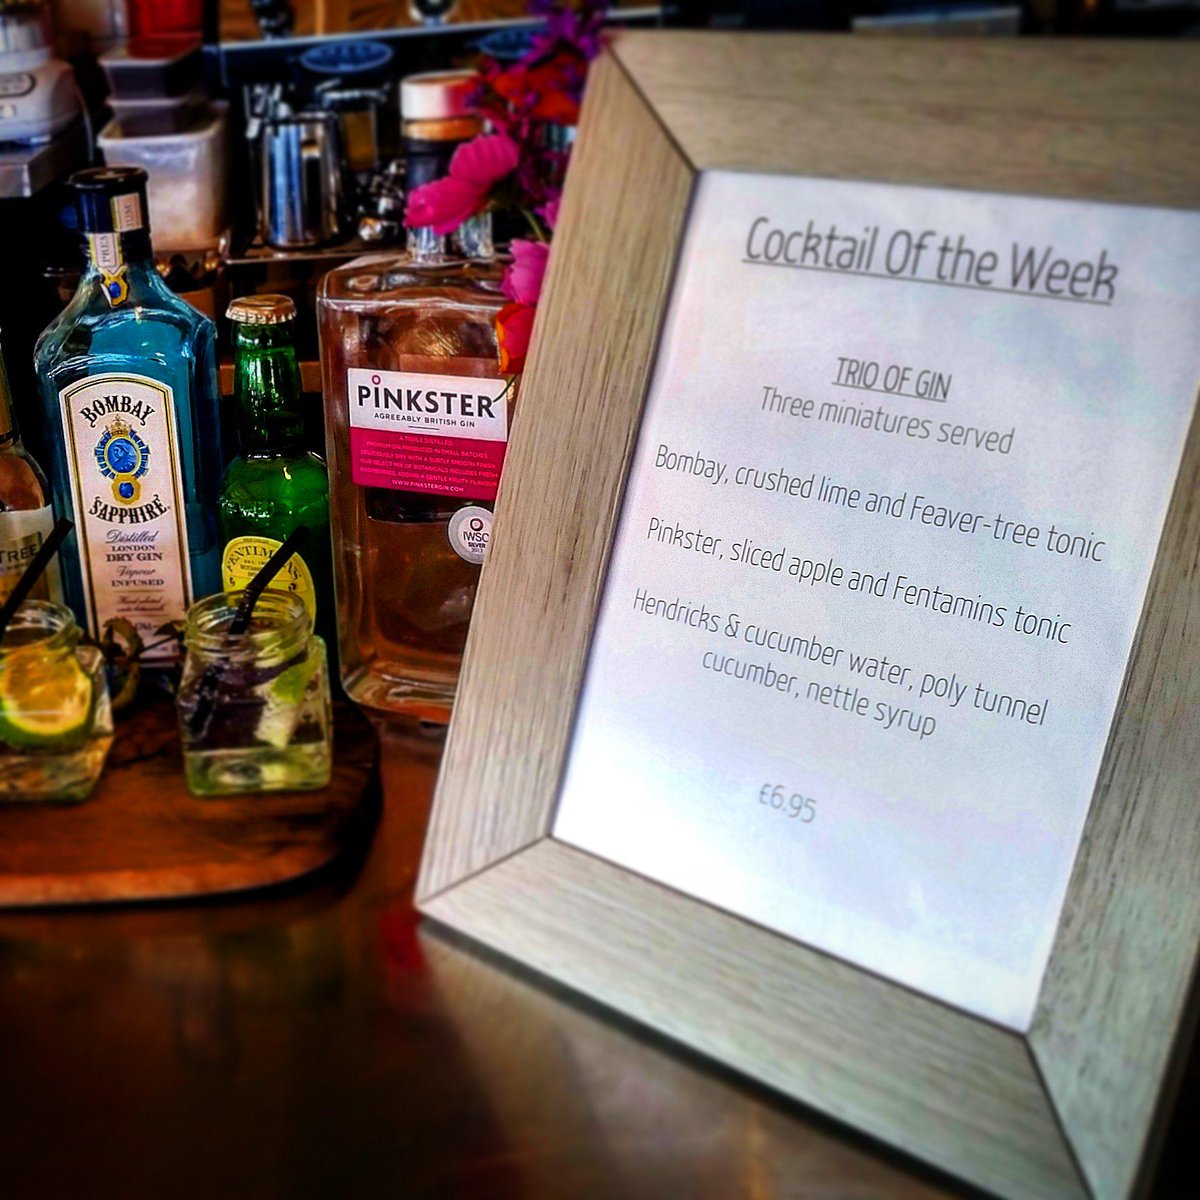 Cocktail Of the Week
TRIO OF GIN
Three miniatures served
Bombay, crushed lime and Feaver-tree tonic
Pinkster, sliced apple and Fentamins tonic
Hendricks & cucumber water, poly tunnel
cucumber, nettle syrup
£6.95
BOMBAY
SAPPHIRE
Distilled
LONDON
DRY GIN
Vapour
INFUSED
TREE
FENTIMANS
PINKSTER
AGREEABLY BRITISH GIN
A TRIPLE DISTILLED,
PREMIUM GIN PRODUCED IN SMALL BATCHES.
DELICIOUSLY DRY WITH A SUBTLY SMOOTH FINISH
OUR SELECT MIX OF BOTANICALS INCLUDES FRESH
RASPBERRIES, ADDING A GENTLE FRUITY FLAVOUR
WWW.PINKSTERGIN.COM
IWSC
SILVER